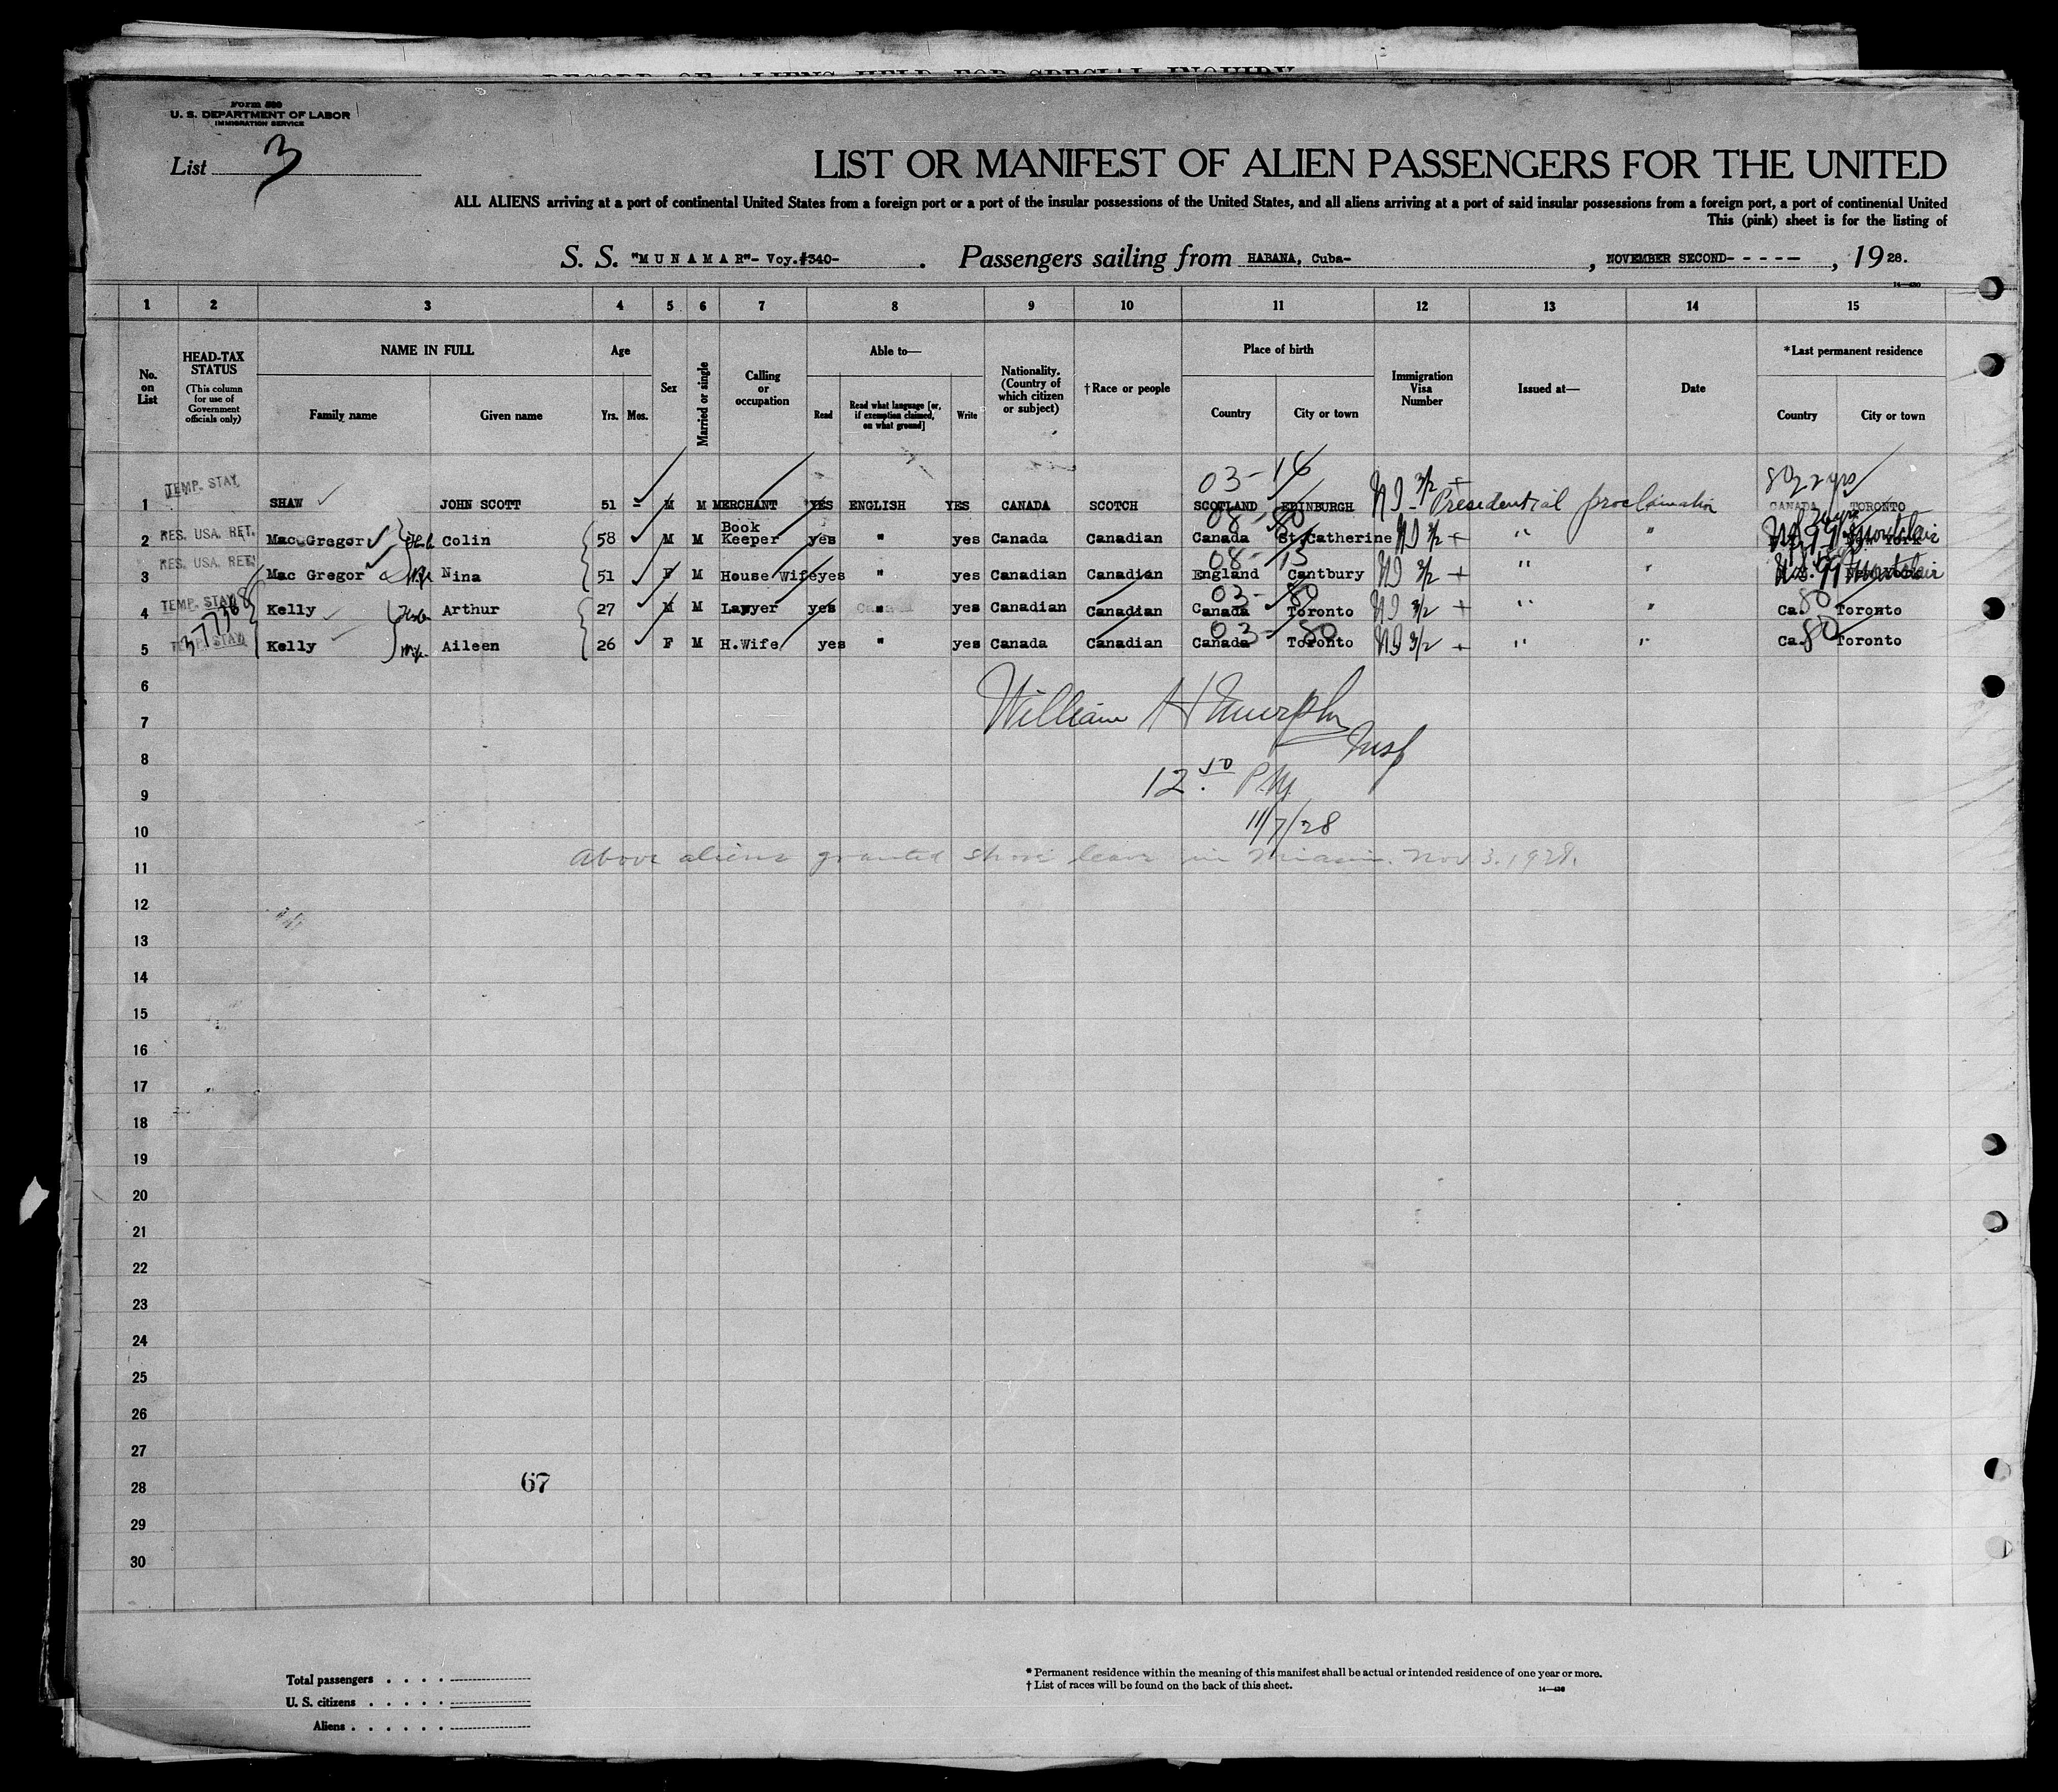 RECORD OF ALIENS HELD FOR SPECIAL INQUIRY
Form 500
U. S. DEPARTMENT OF LABOR
IMMIGRATION SERVICE
List 3
LIST OR MANIFEST OF ALIEN PASSENGERS FOR THE UNITED
ALL ALIENS arriving at a port of continental United States from a foreign port or a port of the insular possessions of the United States, and all aliens arriving at a port of said insular possessions from a foreign port, a port of continental United
This (pink) sheet is for the listing of
S. S. "M U N A M A R"- Voy.#340- . Passengers sailing from HABANA, Cuba- , NOVEMBER SECOND- - - - - , 19 28.
1 2 3 4 5 6 7 8 9 10 11 12 13 14 15
No. on List
HEAD-TAX STATUS (This column for use of Government officials only)
NAME IN FULL
Family name Given name
Age
Yrs. Mos.
Sex
Married or single
Calling or occupation
Able to—
Read Read what language [or, if exemption claimed, on what ground] Write
Nationality. (Country of which citizen or subject)
†Race or people
Place of birth
Country City or town
Immigration Visa Number
Issued at—
Date
*Last permanent residence
Country City or town
03-16
80 22 yrs
1 TEMP. STAY SHAW JOHN SCOTT 51 - M M MERCHANT YES ENGLISH YES CANADA SCOTCH SCOTLAND EDINBURGH NI 3/2 + Presidential proclamation CANADA TORONTO
08-80
2 RES. USA. RET. Mac Gregor Colin 58 M M Book Keeper yes " yes Canada Canadian Canada St Catherine NI 3/2 + " " 99 Montclair
08-13
3 RES. USA. RET. Mac Gregor Wife Nina 51 F M House Wife yes " yes Canadian Canadian England Cantbury NI 3/2 + " " 99 Montclair
03-80
80
4 TEMP. STAY Kelly Arthur 27 M M Lawyer yes " yes Canadian Canadian Canada Toronto NI 3/2 + " " Ca. Toronto
03-80
80
5 TEMP. STAY Kelly Wife Aileen 26 F M H.Wife yes " yes Canada Canadian Canada Toronto NI 3/2 + " " Ca. Toronto
6
William H Murphy
7
Insp
8
12.50 P.M.
9
11/7/28
10
Above aliens granted shore leave in Miami. Nov 3. 1928.
11
12
13
14
15
16
17
18
19
20
21
22
23
24
25
26
27
28 67
29
30
Total passengers . . . .
U. S. citizens . . . . .
Aliens . . . . . .
* Permanent residence within the meaning of this manifest shall be actual or intended residence of one year or more.
† List of races will be found on the back of this sheet.